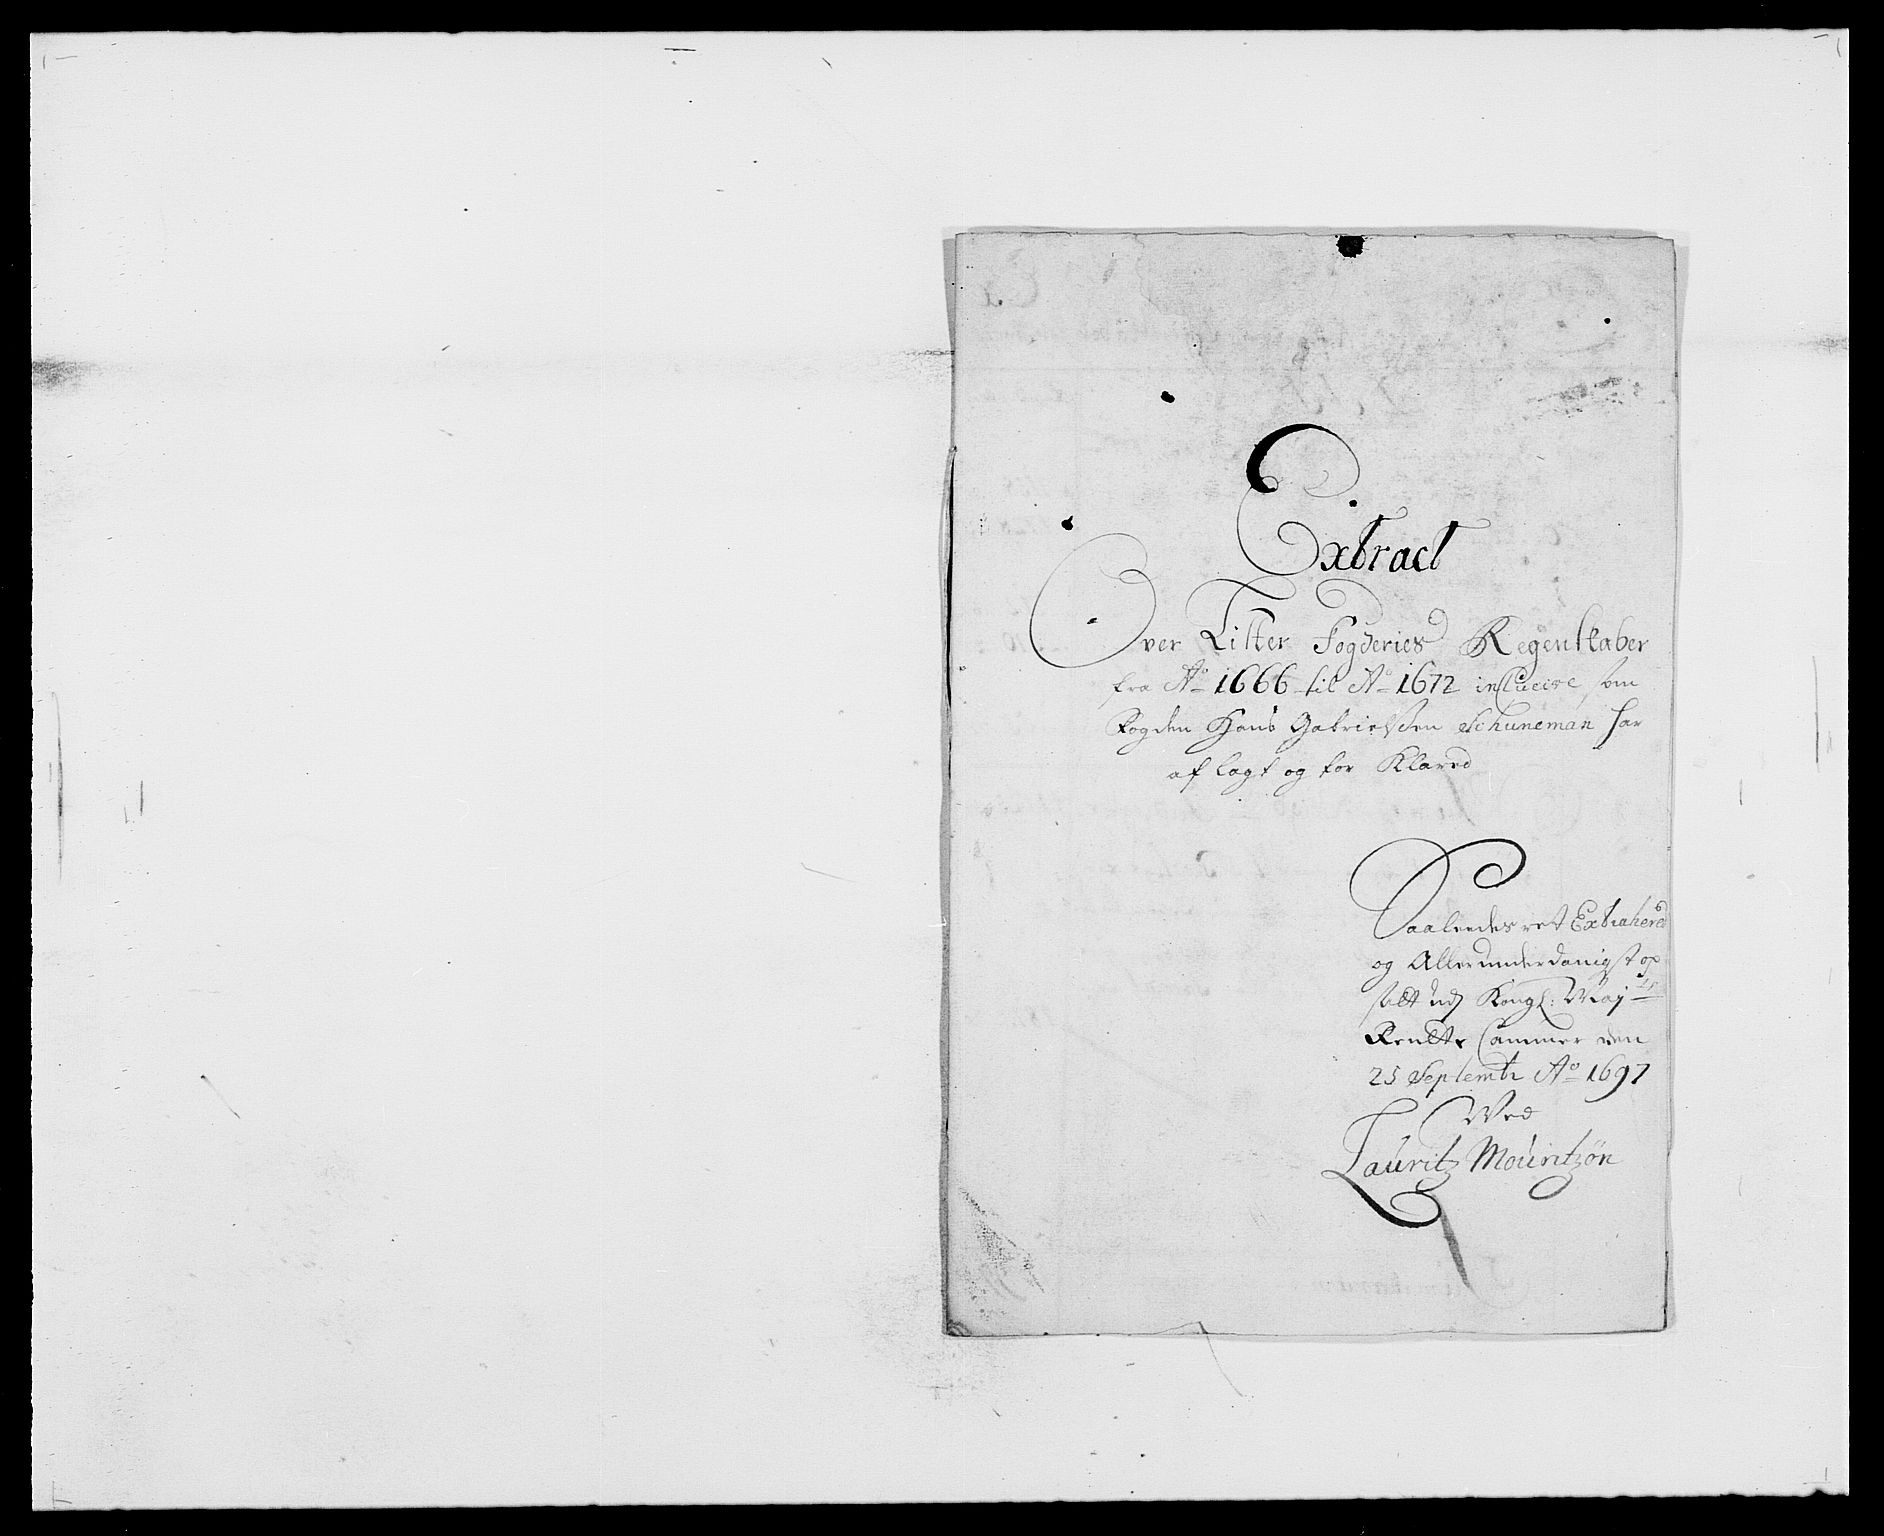 Extract
Over Lister Fogderies Regenskaber
fra Ao 1666 til Ao 1672 inclucive som
Fogden Hans Gabrielsen Schuneman har
aflagt og for Klared
Saaledes ret Extrahered
og Allerunderdanigst op
satt udj Kongl: Maj:ts
Rentte Cammer den
25 Septembr Ao 1697
Ved
Lauritz Mouritzøn